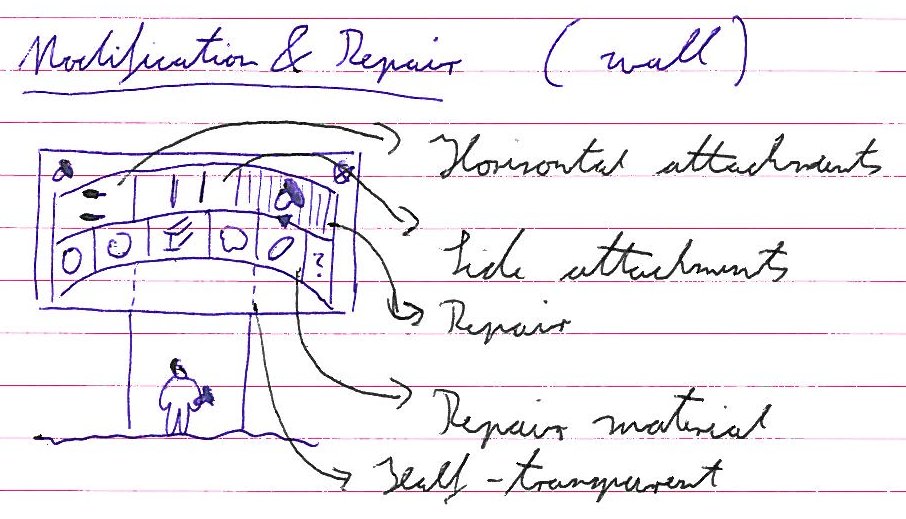 Modification & Repair (wall)
Horisontal attachments
Side attachments
Repair
?
Repair material
Half-transparent